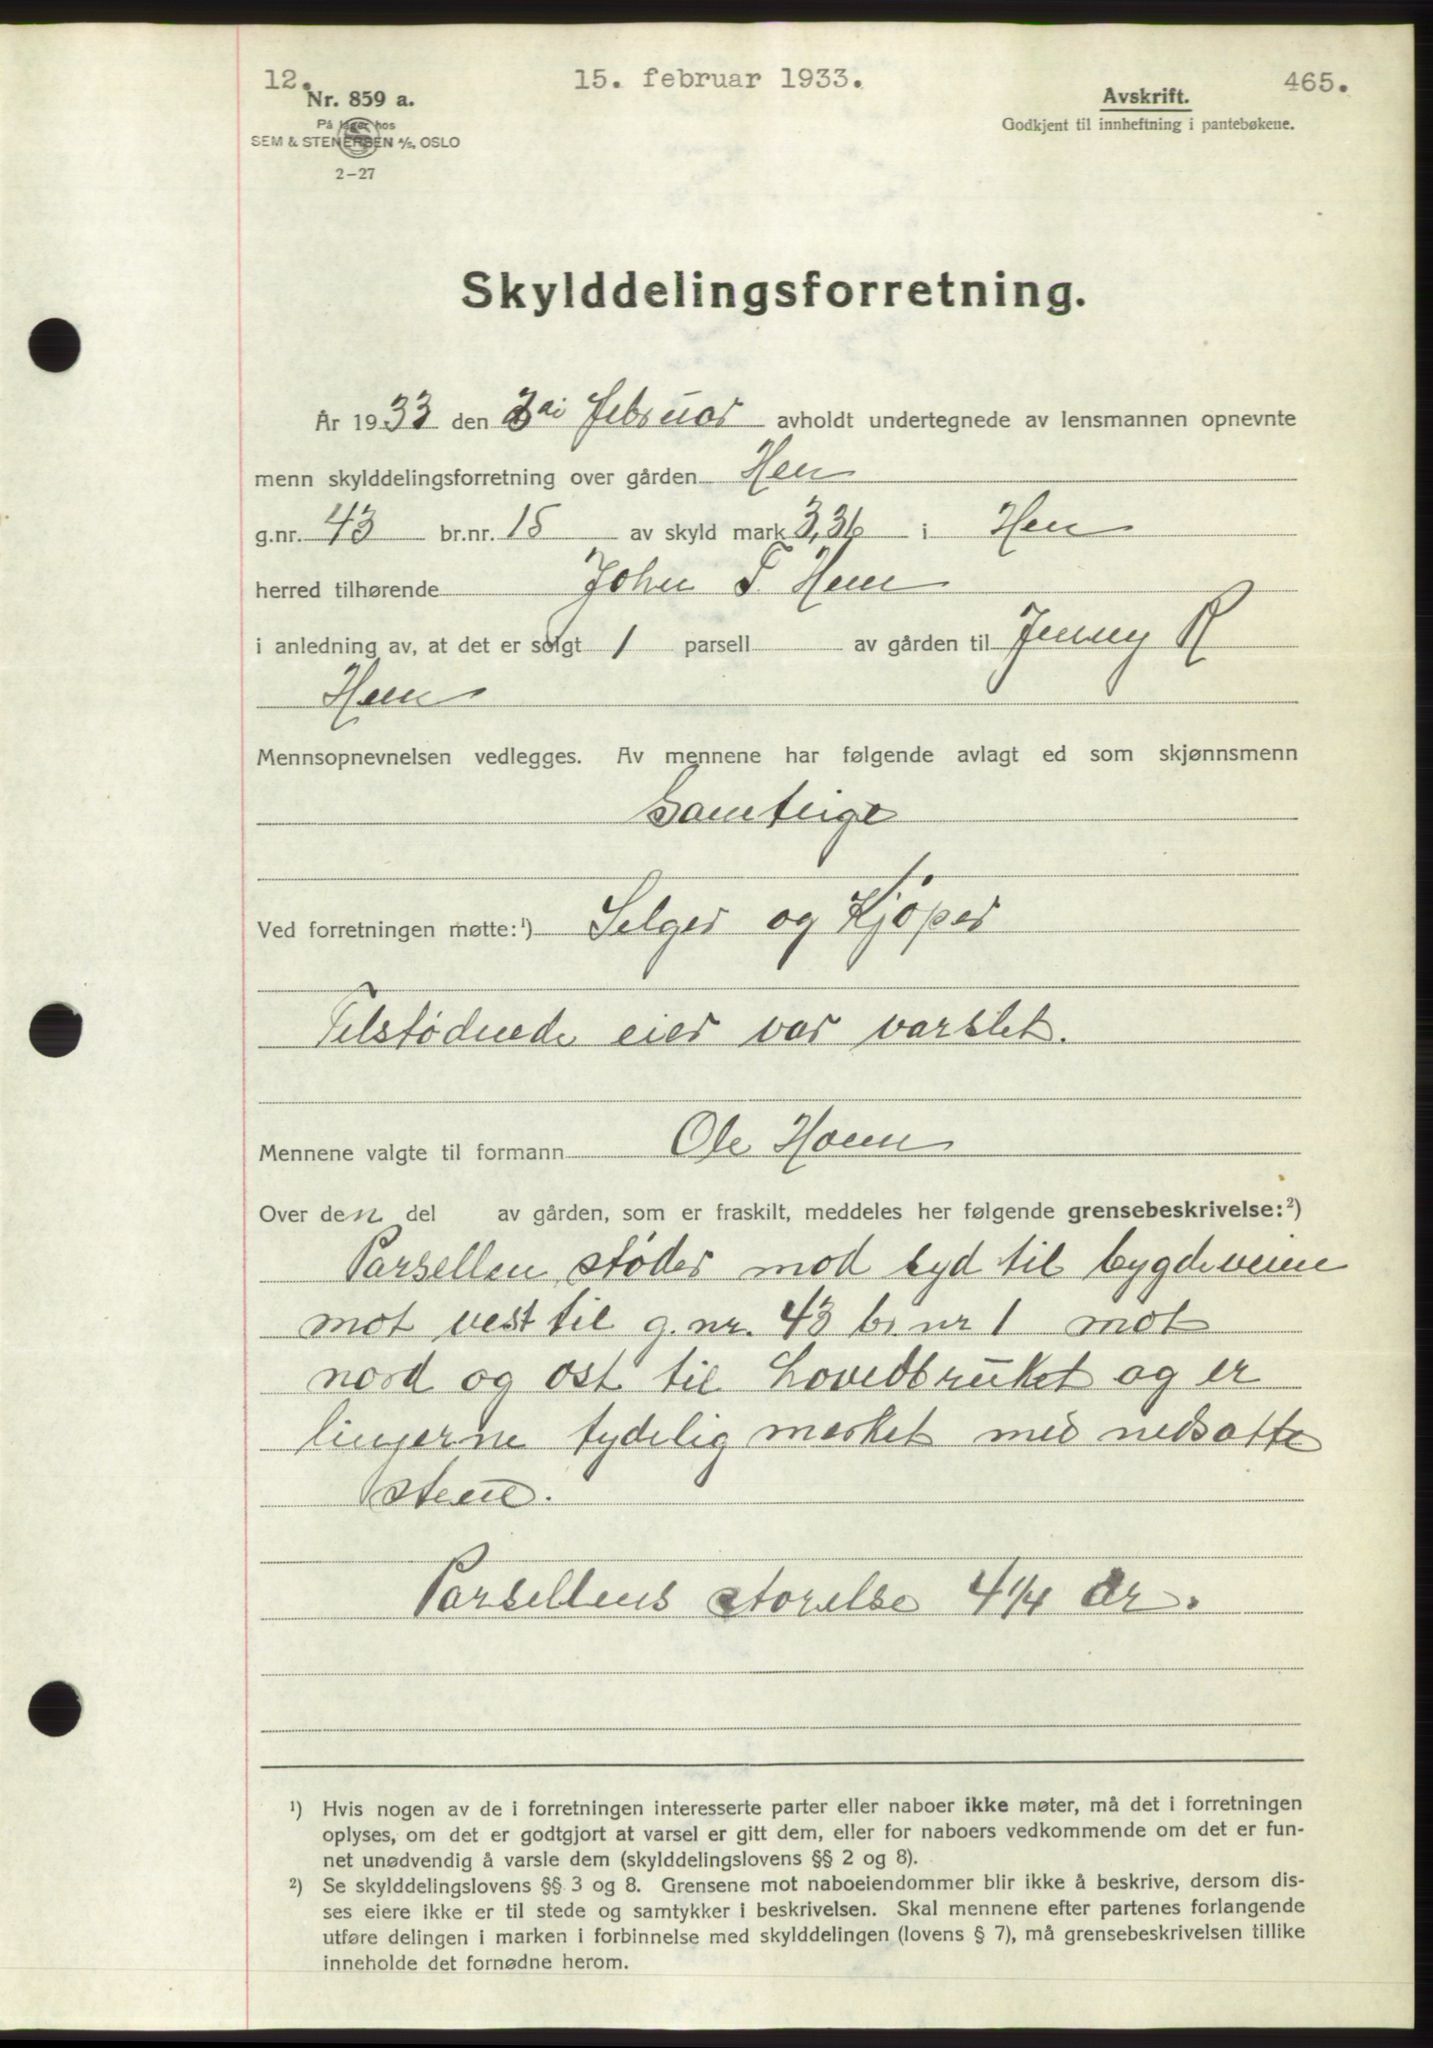 12. 15. februar 1933. 465.
Nr. 859 a. Avskrift.
På lager hos Godkjent til innheftning i pantebøkene.
SEM & STENERSEN A/S, OSLO
2-27
Skylddelingsforretning.
År 1933 den februar avholdt undertegnede av lensmannen opnevnte
menn skylddelingsforretning over gården Hen
g.nr. 43 br.nr. 15 av skyld mark 3,36 i Hen
herred tilhørende John T. Hen
i anledning av, at det er solgt 1 parsell av gården til Jenny R
Hen
Mennsopnevnelsen vedlegges. Av mennene har følgende avlagt ed som skjønnsmenn
Samtlige
Ved forretningen møtte:¹) Selger og Kjøper
Tilstødnede eier var varslet.
Mennene valgte til formann Ole Hoem
Over den del av gården, som er fraskilt, meddeles her følgende grensebeskrivelse:²)
Parsellen støder mod syd til bygdeveien
mot vest til g.nr. 43 br. nr 1 mot
nord og ost til Hovedbruket og er
linjerne tydelig merket med nedsatte
stene.
Parsellens storelse 4 1/4 ar.
¹) Hvis nogen av de i forretningen interesserte parter eller naboer ikke møter, må det i forretningen
oplyses, om det er godtgjort at varsel er gitt dem, eller for naboers vedkommende om det er fun-
net unødvendig å varsle dem (skylddelingslovens §§ 2 og 8).
²) Se skylddelingslovens §§ 3 og 8. Grensene mot naboeiendommer blir ikke å beskrive, dersom dis-
ses eiere ikke er til stede og samtykker i beskrivelsen. Skal mennene efter partenes forlangende
utføre delingen i marken i forbinnelse med skylddelingen (lovens § 7), må grensebeskrivelsen tillike
inneholde det fornødne herom.